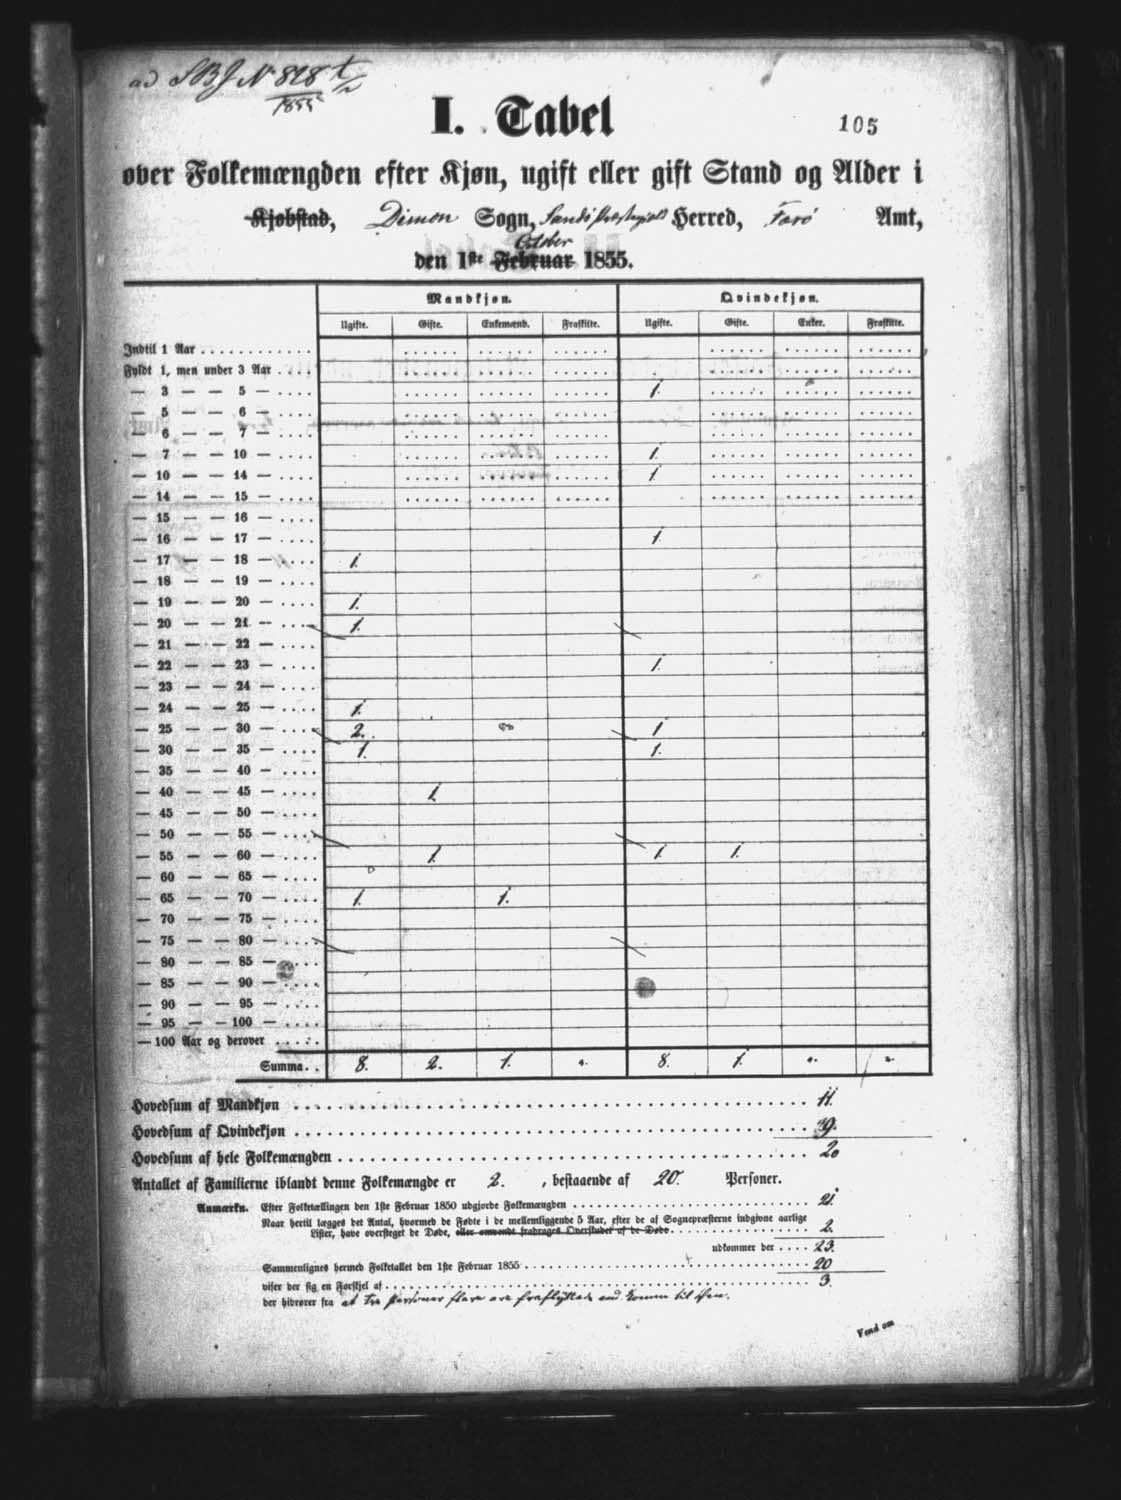 ad SBJ No 828
1855
I. Tabel
105
over Folkemængden efter Kjøn, ugift eller gift Stand og Alder i
Kjøbstad, Dimon Sogn, Sandø Herred, Farø Amt,
October
den 1ste Februar 1855.
Mandkjøn. Qvindekjøn.
Ugifte. Gifte. Enkemænd. Fraskilte. Ugifte. Gifte. Enker. Fraskilte.
Indtil 1 Aar
Fyldt 1, men under 3 Aar
— 3 — — 5 — 1.
— 5 — — 6 —
— 6 — — 7 —
— 7 — — 10 — 1.
— 10 — — 14 — 1.
— 14 — — 15 —
— 15 — — 16 —
— 16 — — 17 — 1.
— 17 — — 18 — 1.
— 18 — — 19 —
— 19 — — 20 — 1.
— 20 — — 21 — 1.
— 21 — — 22 —
— 22 — — 23 — 1.
— 23 — — 24 —
— 24 — — 25 — 1.
— 25 — — 30 — 2. 1
— 30 — — 35 — 1. 1.
— 35 — — 40 —
— 40 — — 45 — 1.
— 45 — — 50 —
— 50 — — 55 —
— 55 — — 60 — 1. 1. 1.
— 60 — — 65 —
— 65 — — 70 — 1. 1.
— 70 — — 75 —
— 75 — — 80 —
— 80 — — 85 —
— 85 — — 90 —
— 90 — — 95 —
— 95 — — 100 —
— 100 Aar og derover
Summa. . 8. 2. 1. 8. 1.
Hovedsum af Mandkjøn 11.
Hovedsum af Qvindekjøn 9.
Hovedsum af hele Folkemængden 20
Antallet af Familierne iblandt denne Folkemængde er 2. , bestaaende af 20. Personer.
Anmærkn. Efter Folketællingen den 1ste Februar 1850 udgjorde Folkemængden 21.
Naar hertil lægges det Antal, hvormed de Fødte i de mellemliggende 5 Aar, efter de af Sognepræsterne indgivne aarlige
Lister, have oversteget de Døde, eller omvendt fradrages Overskudet af de Døde 2.
udkommer der 23.
Sammenlignes hermed Folketallet den 1ste Februar 1855 20
viser der sig en Forskjel af 3.
der hidrører fra at tre personer flere ere fraflyttede end komne til Øen.
Vend om